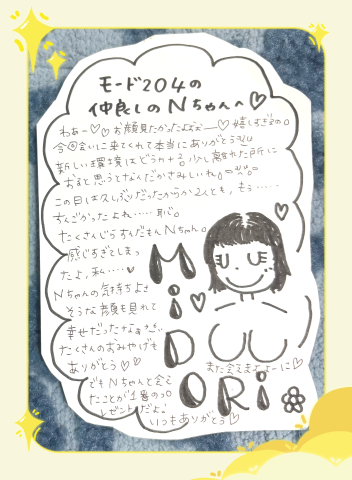 モード204の
仲良しのNちゃんへ♡
わあー♡♡お顔見たかったよぉぉー♡嬉しすぎるの。
今回会いに来てくれて本当にありがとう
新しい環境はどうかな？少し離れた所に
おると思うとなんだかさみしいね。
この日は久しぶりだったからか2人とも、もう……
すんごかったよね……恥。
たくさんじらすんだもんNちゃん。
感じすぎてしまっ
たよ、私……♥
Nちゃんの気持ちよさ
そうな顔も見れて
幸せだったなぁ
たくさんのおみやげも
ありがとう♡♡
でもNちゃんと会え
たことが1番のプ
レゼントだよ♪
いつもありがとう♡
また会えますように♡
MiDORi